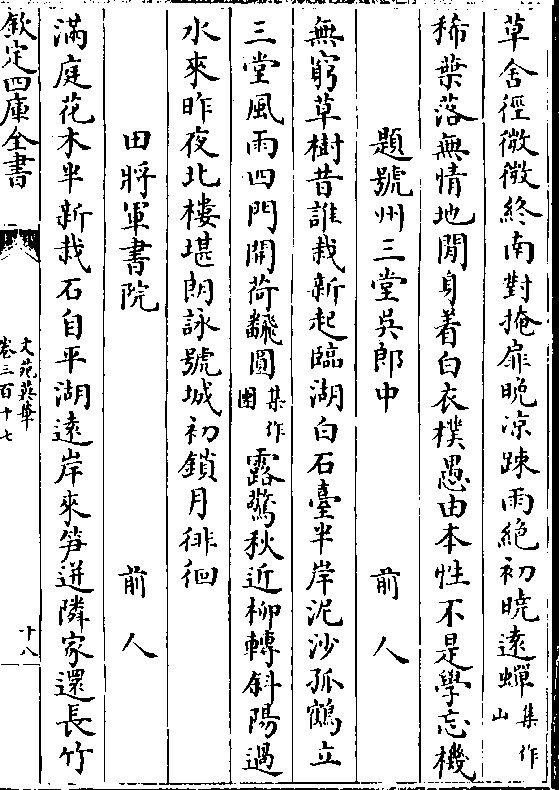 草舍徑微微終南對掩扉晚涼踈雨絕初曉遠蟬集作山
稀葉落無情地閒身着白衣樸愚由本性不是學忘機
題號州三堂吳郎中　前人
無窮草樹昔誰栽新起臨湖白石臺半岸泥沙孤鶴立
三堂風雨四門開荷飜圓集作團露驚秋近柳轉斜陽過
水來昨夜北樓堪朗詠號城初鎖月徘徊
田將軍書院　前人
滿庭花木半新栽石自平湖遠岸來笋迸隣家還長竹
欽定四庫全書
文苑英華
卷三百十七
十八